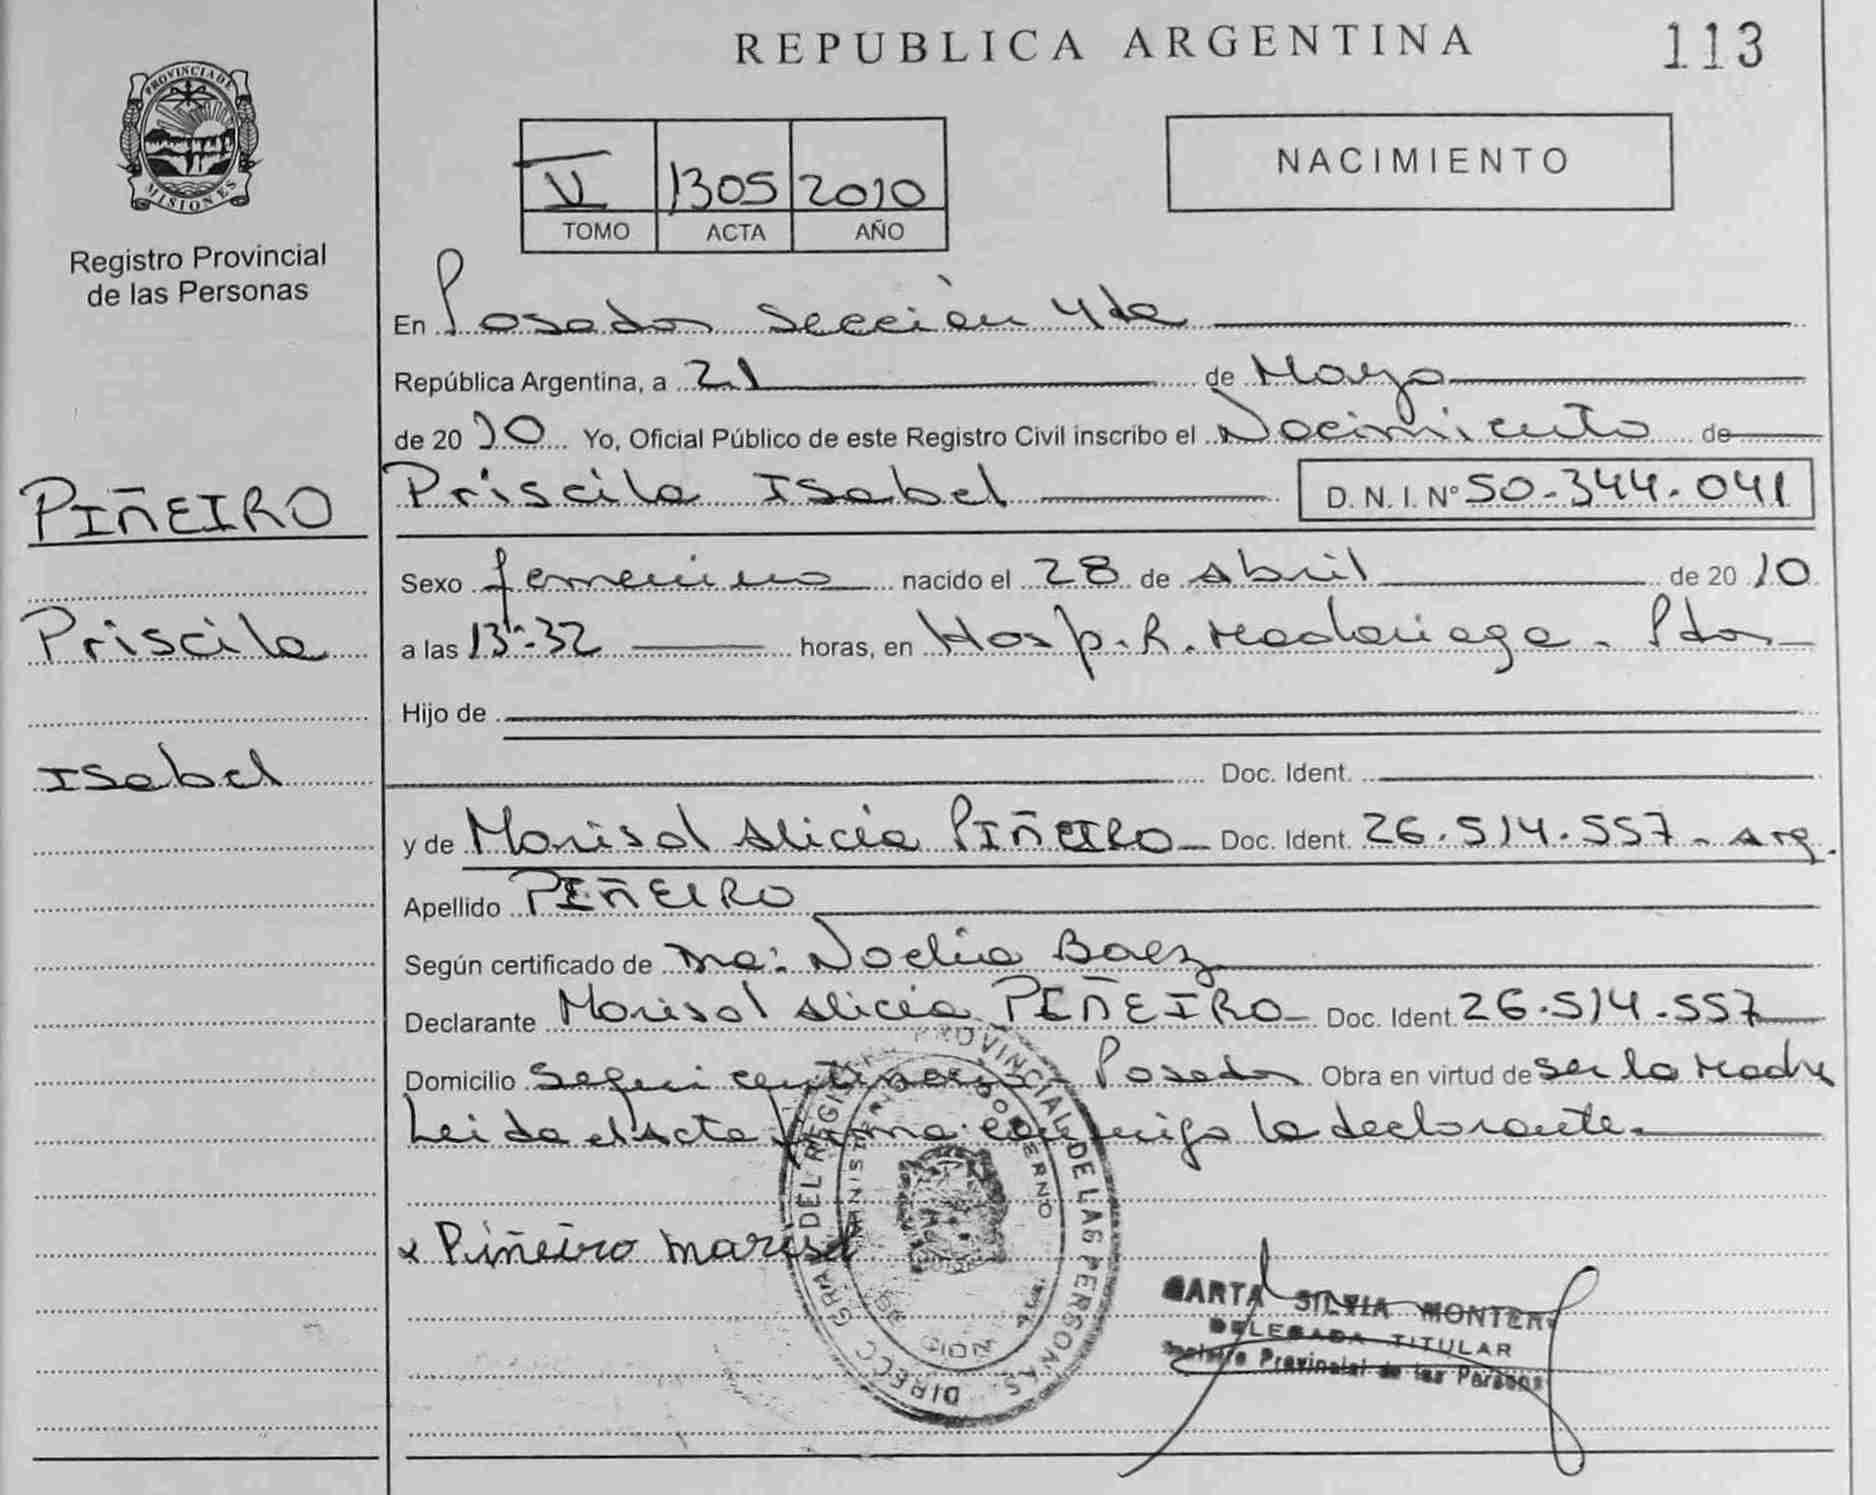 REPUBLICA ARGENTINA
113
PROVINCIA DE
MISIONES
Registro Provincial
de las Personas
V 1305 2010
TOMO ACTA AÑO
NACIMIENTO
En Posadas Sección 4da
República Argentina, a 21 de Mayo
de 2010 Yo, Oficial Público de este Registro Civil inscribo el Nacimiento de
Priscila Isabel D. N. I. Nº 50.344.041
PIÑEIRO
Priscila
Isabel
Sexo femenino nacido el 28 de Abril de 2010
a las 13:32 horas, en Hosp. R. Madariaga - Pdas
Hijo de
Doc. Ident.
y de Marisol Alicia PIÑEIRO Doc. Ident. 26.514.557 - Arg.
Apellido PIÑEIRO
Según certificado de Ma: Noelia Baez
Declarante Marisol Alicia PIÑEIRO Doc. Ident. 26.514.557
Domicilio Seguí Posadas Obra en virtud de ser la madre
Leida el Acta firma conmigo la declarante.
x Piñeiro Marisol
DIRECC GRAL DEL REGISTRO PROVINCIAL DE LAS PERSONAS
MINISTERIO GOBIERNO
MARTA SILVIA MONTERO
DELEGADA TITULAR
Registro Provincial de las Personas